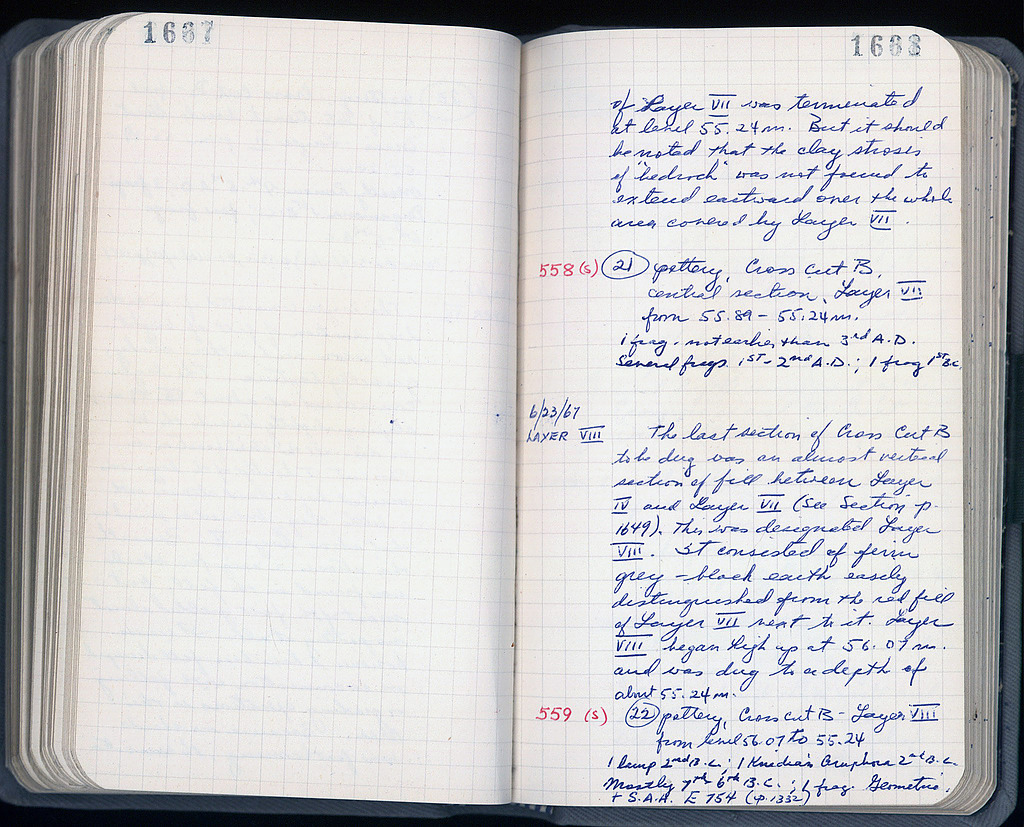 1667
1668
of Layer VII was terminated
at level 55.24 m. But it should
be noted that the clay stroses
of "bedrock" was not found to
extend eastward over the whole
area covered by Layer VII.
558 (s) 21 pottery, Cross Cut B,
central section, Layer VII
from 55.89 - 55.24 m.
1 frag. not earlier than 3rd A.D.
Several frags 1ST - 2nd A.D.; 1 frag 1ST B.C.
6/23/67
LAYER VIII
The last section of Cross Cut B
to be dug was an almost vertical
section of fill between Layer
IV and Layer VII (see Section p.
1649). This was designated Layer
VIII. It consisted of firm
grey - black earth easily
distinguished from the red fill
of Layer VII next to it. Layer
VIII began high up at 56.07 m.
and was dug to a depth of
about 55.24 m.
559 (s) 22 pottery, Cross cut B - Layer VIII
from level 56.07 to 55.24
1 lamp 2nd B.C.; 1 Knidian Amphora 2nd B.C.
Mostly 7th 6th B.C.; 1 frag. Geometric;
+ S.A.H. E 754 (p. 1332)